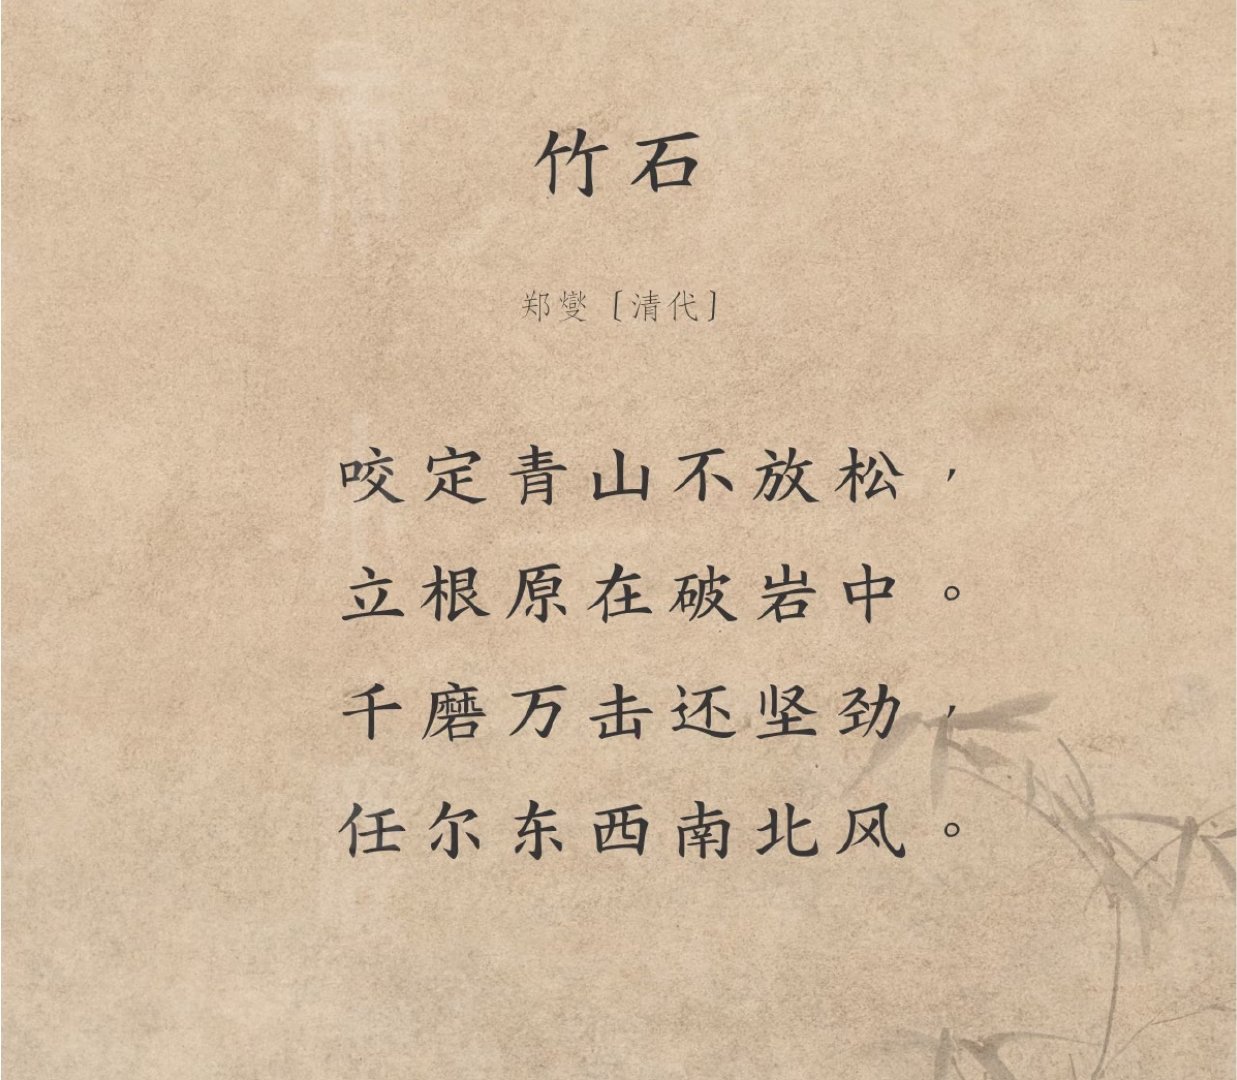 竹石
郑燮〔清代〕
咬定青山不放松，
立根原在破岩中。
千磨万击还坚劲，
任尔东西南北风。